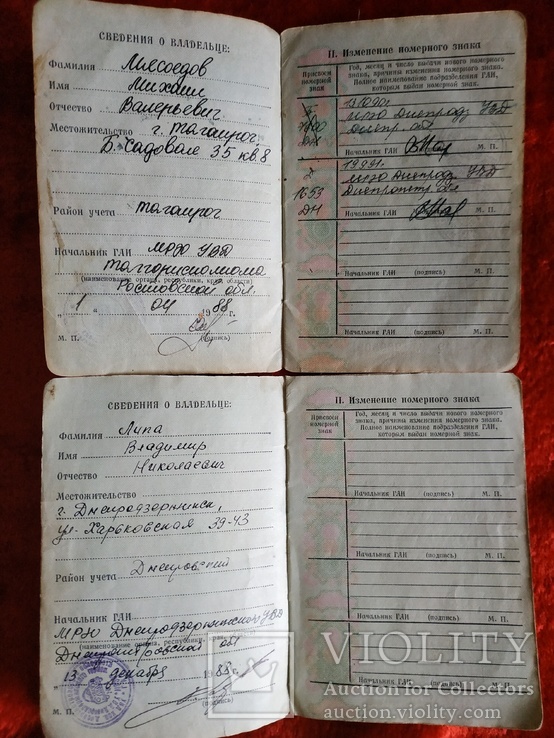 СВЕДЕНИЯ О ВЛАДЕЛЬЦЕ:
Фамилия Мясоедов
Имя Михаил
Отчество Валерьевич
Местожительство г. Таганрог,
Б. Садовая 35 кв. 8
Район учета Таганрог
Начальник ГАИ МРЭО УВД
(наименование органа, республики, края, области)
Ростовской обл.
" 1 " 04 1988 г.
М. П. (подпись)
II. Изменение номерного знака
Присвоен номерной знак
Год, месяц и число выдачи нового номерного знака, причины изменения номерного знака. Полное наименование подразделения ГАИ, которым выдан номерной знак.
МРЭО Днепродз. УВД
Днепр. обл
Начальник ГАИ М. П.
1991г.
1653
ДН
МРЭО Днепродз УВД
Днепропетр. обл
Начальник ГАИ (подпись) М. П.
Начальник ГАИ (подпись) М. П.
Начальник ГАИ (подпись) М. П.
СВЕДЕНИЯ О ВЛАДЕЛЬЦЕ:
Фамилия Липа
Имя Владимир
Отчество Николаевич
Местожительство
г. Днепродзержинск,
ул. Харьковская 39-43
Район учета Днепровский
Начальник ГАИ
МРЭО Днепродзержинского УВД
(наименование органа, республики, края,
Днепропетровской обл
13 декабря 1988 г.
М. П. (подпись)
II. Изменение номерного знака
Присвоен номерной знак
Год, месяц и число выдачи нового номерного знака, причины изменения номерного знака. Полное наименование подразделения ГАИ, которым выдан номерной знак.
Начальник ГАИ (подпись) М. П.
Начальник ГАИ (подпись) М. П.
Начальник ГАИ (подпись) М. П.
VIOLITY
Auction for Collectors
auction.violity.com